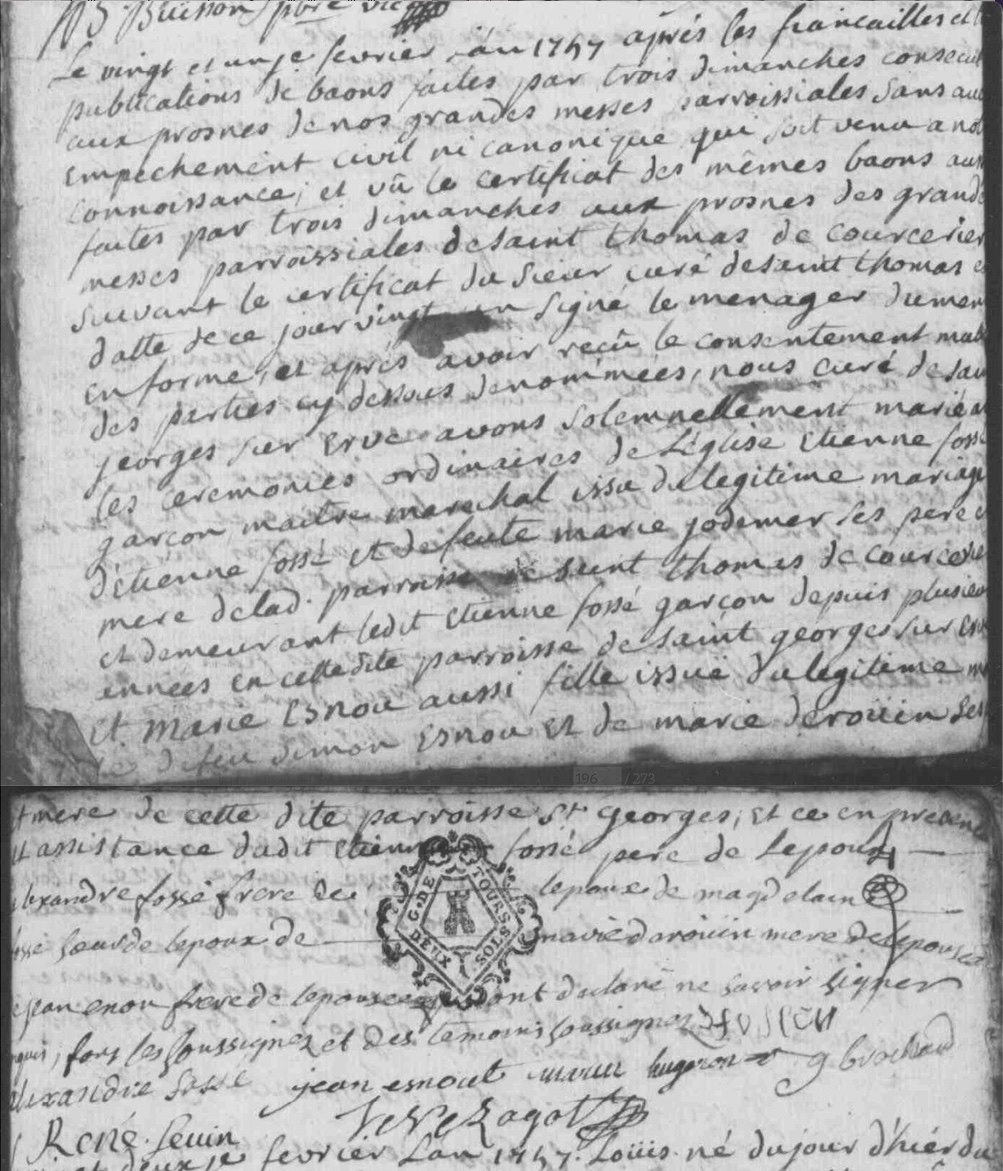 Buisson pbre vic
Le vingt et unje fevrier lan 1747 aprés les fiancailles et
publications de baons faites par trois dimanches consecut
aux prosnes de nos grandes messes parroissiales sans auc
Empechement civil ni canonique qui soit venu a not
connoissance, et vû le certificat des mêmes baons aux
faites par trois dimanches aux prosnes des grand
messes parroissiales de saint thomas de courcerier
suivant le certificat du sieur curé de saint thomas e
datte de ce jour vingt un signé le menager dument
en forme, et aprés avoir reçû le consentement mut
des parties cy dessous denommées, nous curé de sai
georges sur Erve avons solemnellement marié a
les ceremonies ordinaires de L'église Etienne fossé
garçon maitre marechal issu du legitime mariage
d'étienne fossé et de feute marie jodemer ses pere e
mere de lad. parroisse de saint thomas de courcerie
et demeurant ledit Etienne fossé garçon depuis plusieu
ennées en cette dite parroisse de saint georges sur Erv
et marie Esnou aussi fille issuë du legitime m
de feu simon Esnou Et de marie derouin ses
et mere de cette dite parroisse st georges, et ce en presence
et assistance dudit etienne fossé pere de Lepoux
alexandre fossé frere de lepoux de magdelain
fossé soeur de lepoux de marie darouin mere de lepouse
jean enou frere de lepousee qui ont declaré ne savoir signer
enquis, fors les soussignez et des temoins soussignez
G. DE TOURS DEUX SOLS
alexandre fosse jean esnout marin hugeron g brochard
Rene Ragot
René Seuin
deuxje fevrier Lan 1747. Loüis né du jour d'hiér du
196 / 273